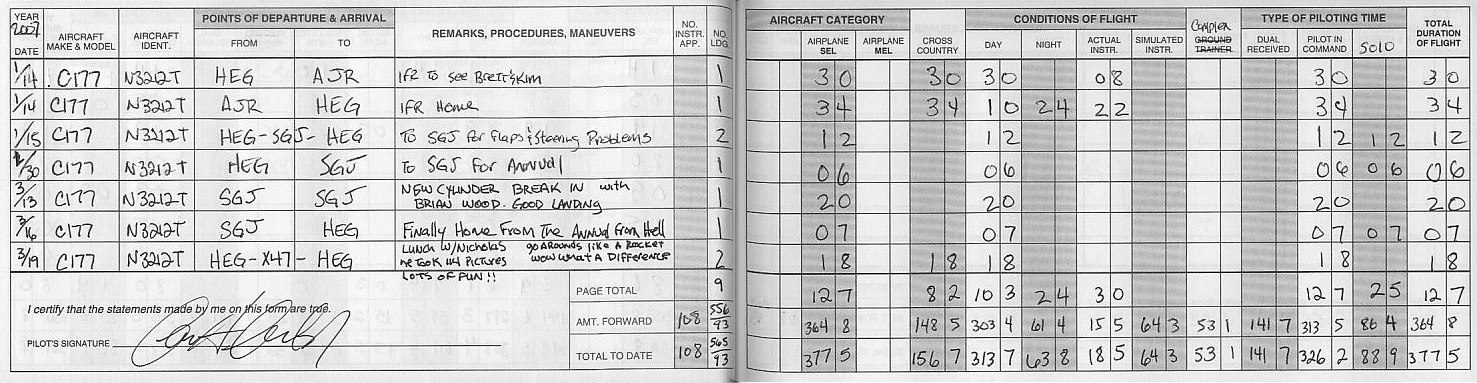 YEAR 2007 DATE | AIRCRAFT MAKE & MODEL | AIRCRAFT IDENT. | POINTS OF DEPARTURE & ARRIVAL FROM TO | REMARKS, PROCEDURES, MANEUVERS | NO. INSTR. APP. | NO. LDG. | AIRCRAFT CATEGORY AIRPLANE SEL AIRPLANE MEL | CROSS COUNTRY | CONDITIONS OF FLIGHT DAY NIGHT ACTUAL INSTR. SIMULATED INSTR. | Complex GROUND TRAINER | TYPE OF PILOTING TIME DUAL RECEIVED PILOT IN COMMAND SOLO | TOTAL DURATION OF FLIGHT
1/14 C177 N3212T HEG AJR IFR To see Brett & Kim 1 3 0 3 0 3 0 0 8 3 0 3 0
1/14 C177 N3212T AJR HEG IFR Home 1 3 4 3 4 1 0 2 4 2 2 3 4 3 4
1/15 C177 N3212T HEG-SGJ-HEG To SGJ for flaps & Steering Problems 2 1 2 1 2 1 2 1 2 1 2
1/30 C177 N3212T HEG SGJ To SGJ For Annual 1 0 6 0 6 0 6 0 6 0 6
3/13 C177 N3212T SGJ SGJ NEW CYLINDER BREAK IN with BRIAN WOOD. GOOD LANDING 1 2 0 2 0 2 0 2 0
3/16 C177 N3212T SGJ HEG Finally Home From The Annual From Hell 1 0 7 0 7 0 7 0 7 0 7
3/19 C177 N3212T HEG-X47-HEG Lunch w/Nicholas go Arounds like A Rocket he Took 114 Pictures wow what A Difference LOTS OF FUN!! 2 1 8 1 8 1 8 1 8 1 8
PAGE TOTAL 9 12 7 8 2 10 3 2 4 3 0 12 7 2 5 12 7
I certify that the statements made by me on this form are true.
AMT. FORWARD 108 556/93 364 8 148 5 303 4 61 4 15 5 64 3 53 1 141 7 313 5 86 4 364 8
PILOT'S SIGNATURE
TOTAL TO DATE 108 565/93 377 5 156 7 313 7 63 8 18 5 64 3 53 1 141 7 326 2 88 9 377 5